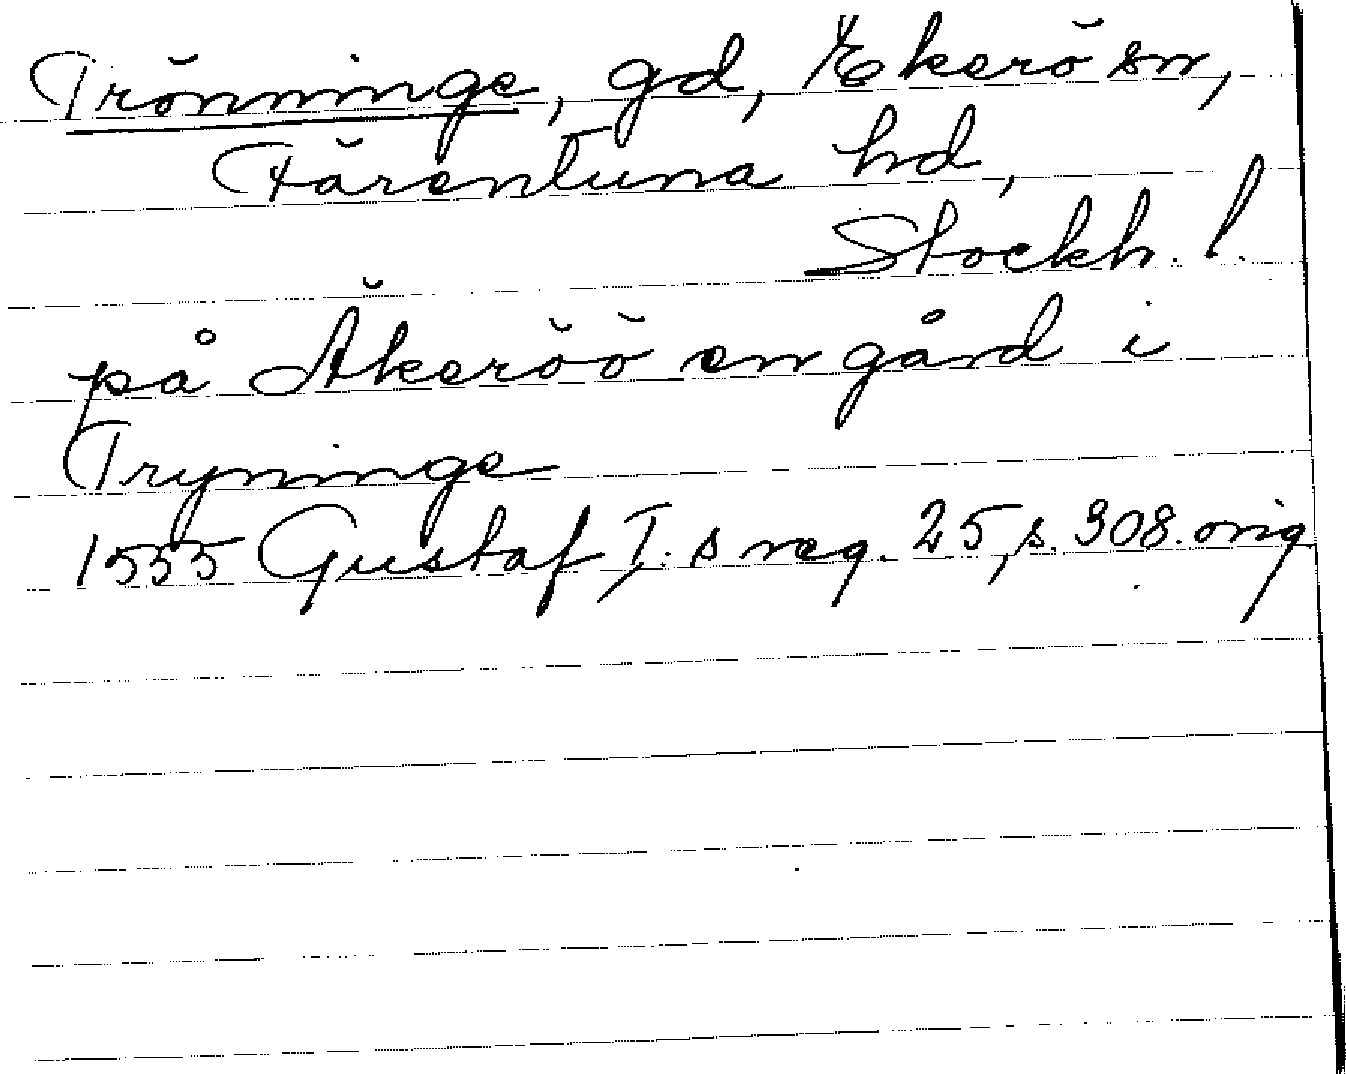 Trönninge, gd, Ekerö sn,
Färentuna hd,
Stockh. l.
på Äkeröö en gård i
Tryninge
1555 Gustaf I. s reg. 25, s. 308. orig